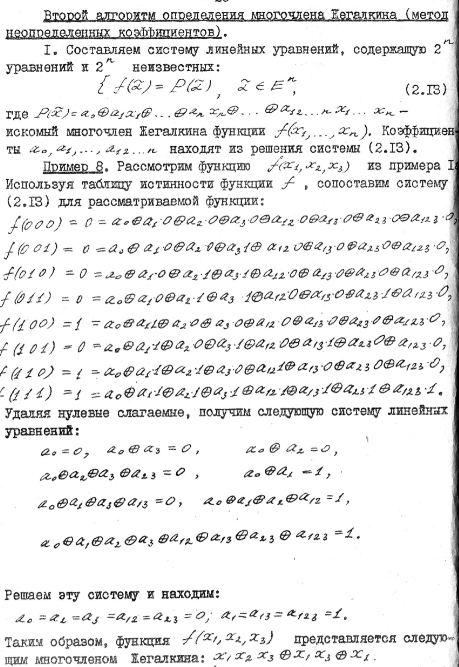 Второй алгоритм определения многочлена Жегалкина (метод
неопределенных коэффициентов).
I. Составляем систему линейных уравнений, содержащую 2ⁿ
уравнений и 2ⁿ неизвестных:
{ f(x̃) = P(x̃), x̃ ∈ Eⁿ, (2.I3)
где P(x̃) = a₀⊕a₁x₁⊕...⊕aₙxₙ⊕...⊕a₁₂...ₙ x₁... xₙ –
искомый многочлен Жегалкина функции f(x₁,...,xₙ). Коэффициен
ты a₀, a₁,..., a₁₂...ₙ находят из решения системы (2.I3).
Пример 8. Рассмотрим функцию f(x₁,x₂,x₃) из примера I
Используя таблицу истинности функции f, сопоставим систему
(2.I3) для рассматриваемой функции:
f(000) = 0 = a₀⊕a₁·0⊕a₂·0⊕a₃·0⊕a₁₂·0⊕a₁₃·0⊕a₂₃·0⊕a₁₂₃·0,
f(001) = 0 = a₀⊕a₁0⊕a₂·0⊕a₃1⊕a₁₂0⊕a₁₃·0⊕a₂₃0⊕a₁₂₃·0,
f(010) = 0 = a₀⊕a₁·0⊕a₂·1⊕a₃·0⊕a₁₂0⊕a₁₃·0⊕a₂₃·0⊕a₁₂₃·0,
f(011) = 0 = a₀⊕a₁0⊕a₂·1⊕a₃·1⊕a₁₂0⊕a₁₃·0⊕a₂₃·1⊕a₁₂₃·0,
f(100) = 1 = a₀⊕a₁1⊕a₂0⊕a₃·0⊕a₁₂·0⊕a₁₃·0⊕a₂₃0⊕a₁₂₃·0,
f(101) = 0 = a₀⊕a₁·1⊕a₂0⊕a₃·1⊕a₁₂·0⊕a₁₃·1⊕a₂₃·0⊕a₁₂₃·0,
f(110) = 1 = a₀⊕a₁·1⊕a₂·1⊕a₃·0⊕a₁₂1⊕a₁₃·0⊕a₂₃·0⊕a₁₂₃·0,
f(111) = 1 = a₀⊕a₁·1⊕a₂·1⊕a₃·1⊕a₁₂·1⊕a₁₃·1⊕a₂₃·1⊕a₁₂₃·1.
Удаляя нулевые слагаемые, получим следующую систему линейных
уравнений:
a₀=0, a₀⊕a₃=0, a₀⊕a₂=0,
a₀⊕a₂⊕a₃⊕a₂₃=0, a₀⊕a₁=1,
a₀⊕a₁⊕a₃⊕a₁₃=0, a₀⊕a₁⊕a₂⊕a₁₂=1,
a₀⊕a₁⊕a₂⊕a₃⊕a₁₂⊕a₁₃⊕a₂₃⊕a₁₂₃=1.
Решаем эту систему и находим:
a₀=a₂=a₃=a₁₂=a₂₃=0; a₁=a₁₃=a₁₂₃=1.
Таким образом, функция f(x₁,x₂,x₃) представляется следую-
щим многочленом Жегалкина: x₁x₂x₃⊕x₁x₃⊕x₁.